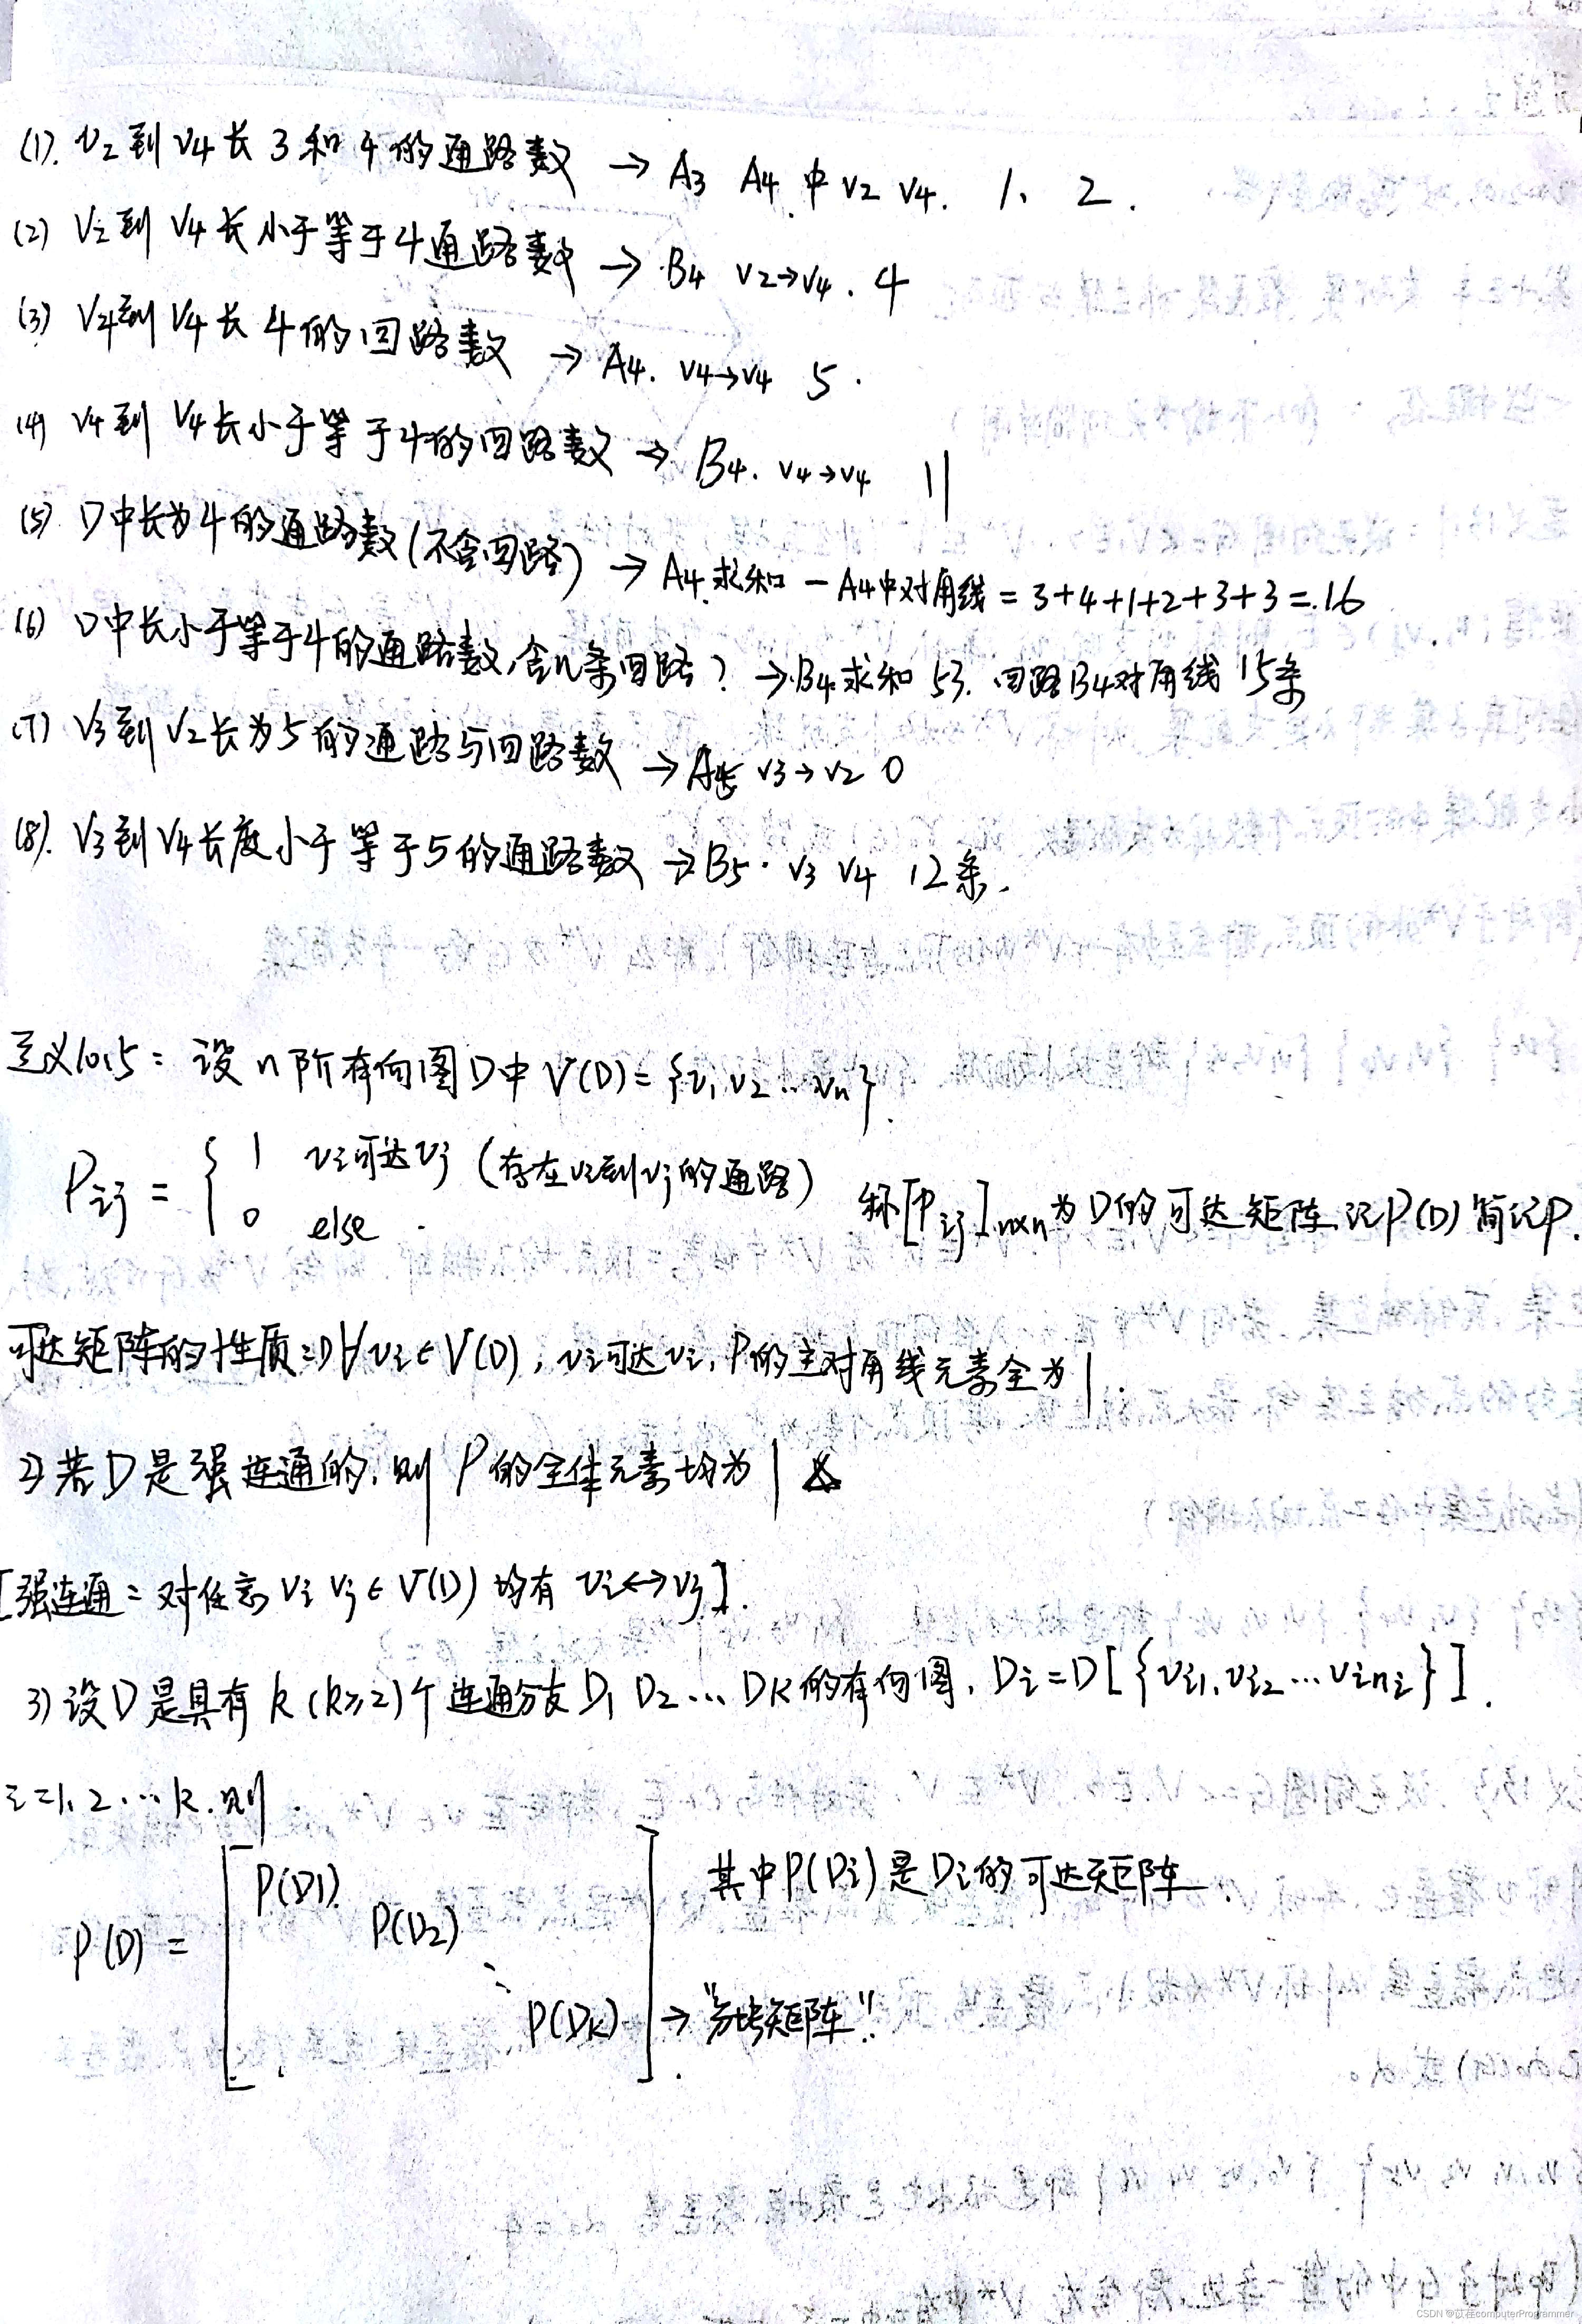 (1). v₂到v₄长3和4的通路数 → A₃ A₄中 v₂ v₄. 1、2.
(2) v₂到v₄长小于等于4通路数 → B₄ v₂→v₄. 4
(3) v₄到v₄长4的回路数 → A₄. v₄→v₄ 5.
(4) v₄到v₄长小于等于4的回路数 → B₄. v₄→v₄ 11
(5) D中长为4的通路数(不含回路) → A₄求和 - A₄中对角线 = 3+4+1+2+3+3=16
(6) D中长小于等于4的通路数,含几条回路? → B₄求和 53. 回路B₄对角线 15条
(7) v₃到v₂长为5的通路与回路数 → v₃→v₂ 0
(8). v₃到v₄长度小于等于5的通路数 → B₅. v₃ v₄ 12条.
定义10.15: 设n阶有向图D中 V(D)={v₁ v₂…vₙ}.
Pᵢⱼ = { 1 vᵢ可达vⱼ (存在vᵢ到vⱼ的通路)
0 else. 称[Pᵢⱼ]ₙₓₙ为D的可达矩阵.记P(D)简记P.
可达矩阵的性质:1) ∀vᵢ∈V(D), vᵢ可达vᵢ, P的主对角线元素全为1.
2) 若D是强连通的,则P的全体元素均为1
[强连通: 对任意vᵢ vⱼ∈V(D) 均有 vᵢ↔vⱼ].
3) 设D是具有k(k≥2)个连通分支D₁ D₂…Dₖ的有向图, Dᵢ=D[{vᵢ₁,vᵢ₂…vᵢₙᵢ}].
i=1,2…k.则
P(D) = [P(D1) P(D₂) ⋱ P(Dₖ)] 其中P(Dᵢ)是Dᵢ的可达矩阵.
→ "分块矩阵".